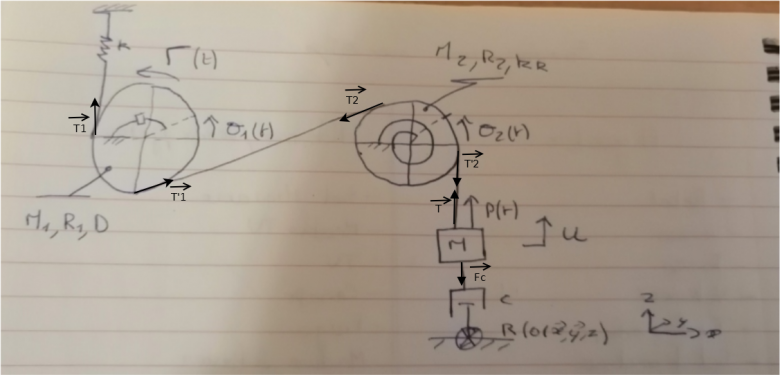 k
Γ(t)
M2, R2, kR
T2
T1
θ1(t)
θ2(t)
D
T'1
T'2
M1, R1, D
T
P(t)
M
u
Fc
c
R(o(x,y,z)
z
y
x